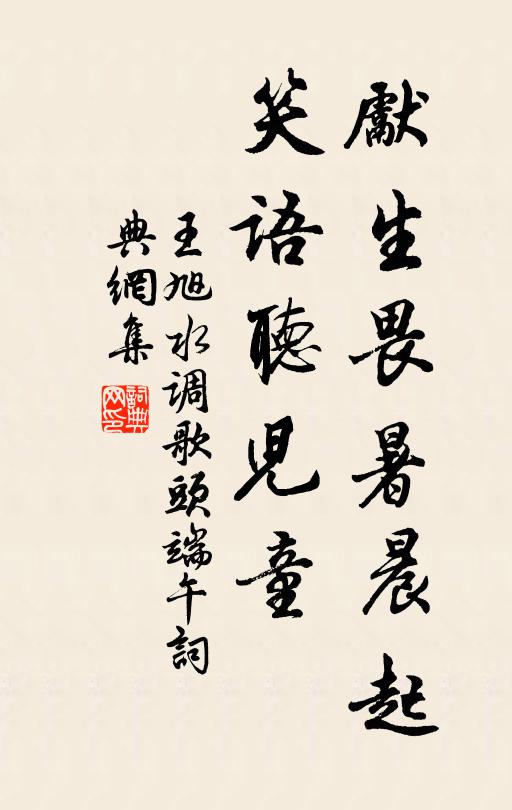 獻生畏暑晨起
笑語聽児童
王旭水调歌頭端午詞
典網集
詞典
网印